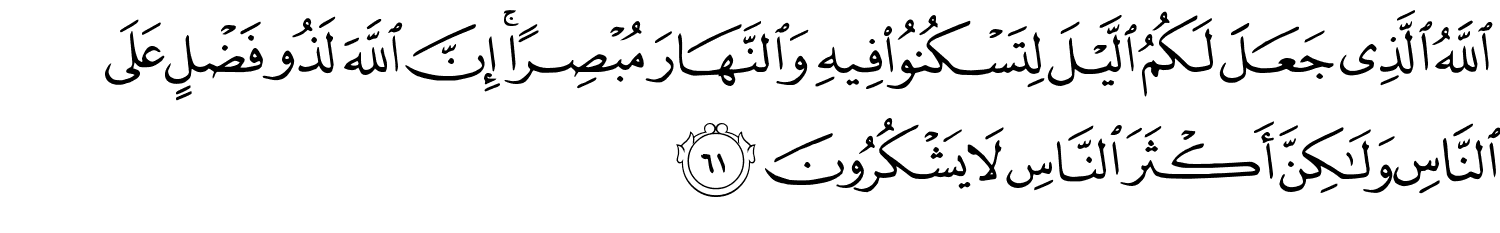 ٱللَّهُ ٱلَّذِى جَعَلَ لَكُمُ ٱلَّيْلَ لِتَسْكُنُوا۟ فِيهِ وَٱلنَّهَارَ مُبْصِرًا ۚ إِنَّ ٱللَّهَ لَذُو فَضْلٍ عَلَى
ٱلنَّاسِ وَلَـٰكِنَّ أَكْثَرَ ٱلنَّاسِ لَا يَشْكُرُونَ ٦١